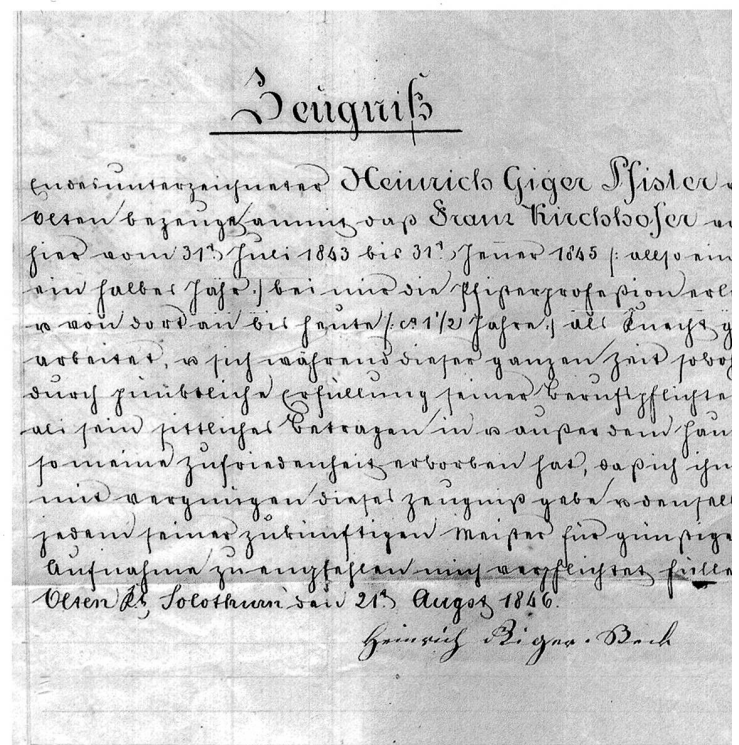 Zeugniß
Endesunterzeichneter Heinrich Giger Pfister
Olten bezeuget ammit daß Franz Kirchhofer
hier vom 31t. Juli 1843 bis 31t. Jener 1845 /: allso ein
ein halbes Jahr :/ bei mir die Pfisterprofeßion
u von dort an bis heute /: ca 1 1/2 Jahre :/ als Knecht
arbeitet, u sich während dieser ganzen Zeit
durch pünktliche Erfüllung seiner
als sein sittliches Betragen in u außer dem
so meine Zufriedenheit erworben hat, daß ich
mit vergnügen dieses Zeugniß gebe u
jedem seiner zukünftigen Meister für
Aufnahme zu empfehlen mich verpflichtet
Olten Kt. Solothurn den 21t. Augst 1846.
Heinrich Giger. Beck